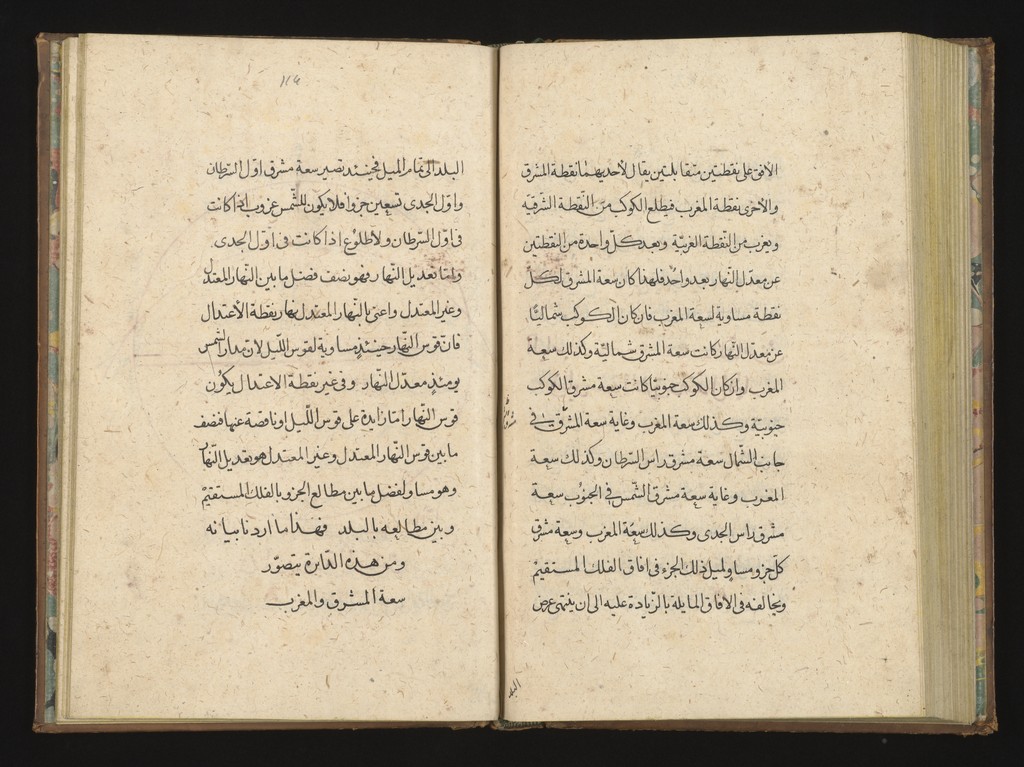 الافق على نقطتين متقابلتين يقال لأحديهما نقطة المشرق
والأخرى نقطة المغرب فيطلع الكوكب من النقطة الشرقيه
ويغرب من النقطة الغربيّة وبعد كلّ واحدة من النقطتين
عن معدّل النهار بعد واحد فلهذا كان سعة المشرق لكلّ
نقطة مساوية لسعة المغرب فان كان الكوكب شماليًّا
عن معدّل النهار كانت سعة المشرق شماليّة وكذلك سعة
المغرب وان كان الكوكب جنوبيّا كانت سعة مشرق الكوكب
جنوبيّة وكذلك سعة المغرب وغاية سعة المشرق في
جانب الشّمال سعة مشرق راس السرطان وكذلك سعة
المغرب وغاية سعة مشرق الشّمس في الجنوب سعة
مشرق راس الجدى وكذلك سعة المغرب وسعة مشرق
كلّ جزو مساو لميل ذلك الجزء فى افاق الفلك المستقيم
ويخالفه فى الافاق المايلة بالزّيادة عليه الى ان ينتهى عرض
البلد
١١٤
البلد الى تمام الميل فحينئذ تصير سعة مشرق اوّل السّرطان
واوّل الجدى تسعين جزوا فلا يكون للشّمس غروب اذا كانت
فى اوّل السّرطان ولا طلوع اذا كانت فى اوّل الجدى
وامّا تعديل النّهار فهو نصف فضل ما بين النّهار المعتدل
وغير المعتدل واعنى بالنّهار المعتدل نهار نقطة الأعتدال
فانّ قوس النّهار حينئذ مساوية لقوس اللّيل لان مدار الشّمس
يومئذ معدّل النّهار وفى غير نقطة الاعتدال يكون
قوس النّهار امّا زايدة على قوس اللّيل او ناقصة عنها فنصف
ما بين قوس النّهار المعتدل وغير المعتدل هو تعديل النّهار
وهو مساو لفضل ما بين مطالع الجزو بالفلك المستقيم
وبين مطالعه بالبلد فهذا ما اردنا بيانه
ومن هذه الدّايرة يتصوّر
سعة المشرق والمغرب